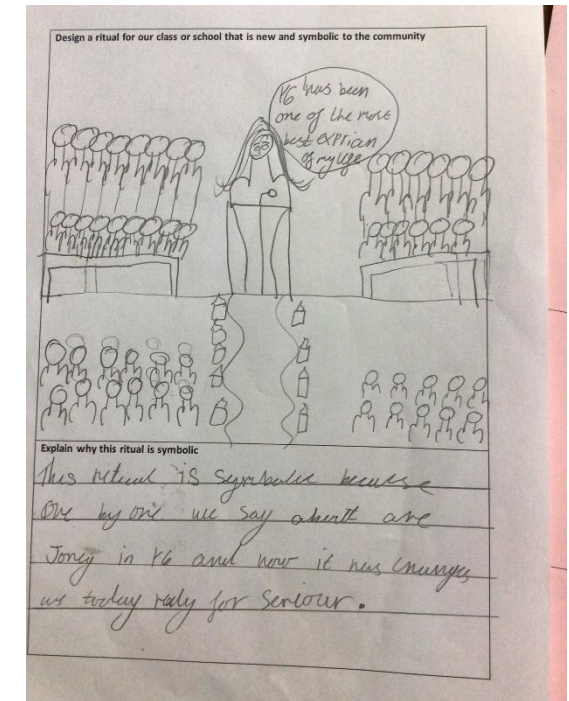 Design a ritual for our class or school that is new and symbolic to the community
Y6 has been
one of the most
best exprian
of my life
Explain why this ritual is symbolic
This ritual is symbolic because
One by one we say abautt are
Joney in Y6 and how it has changes
us today redy for Seriour.